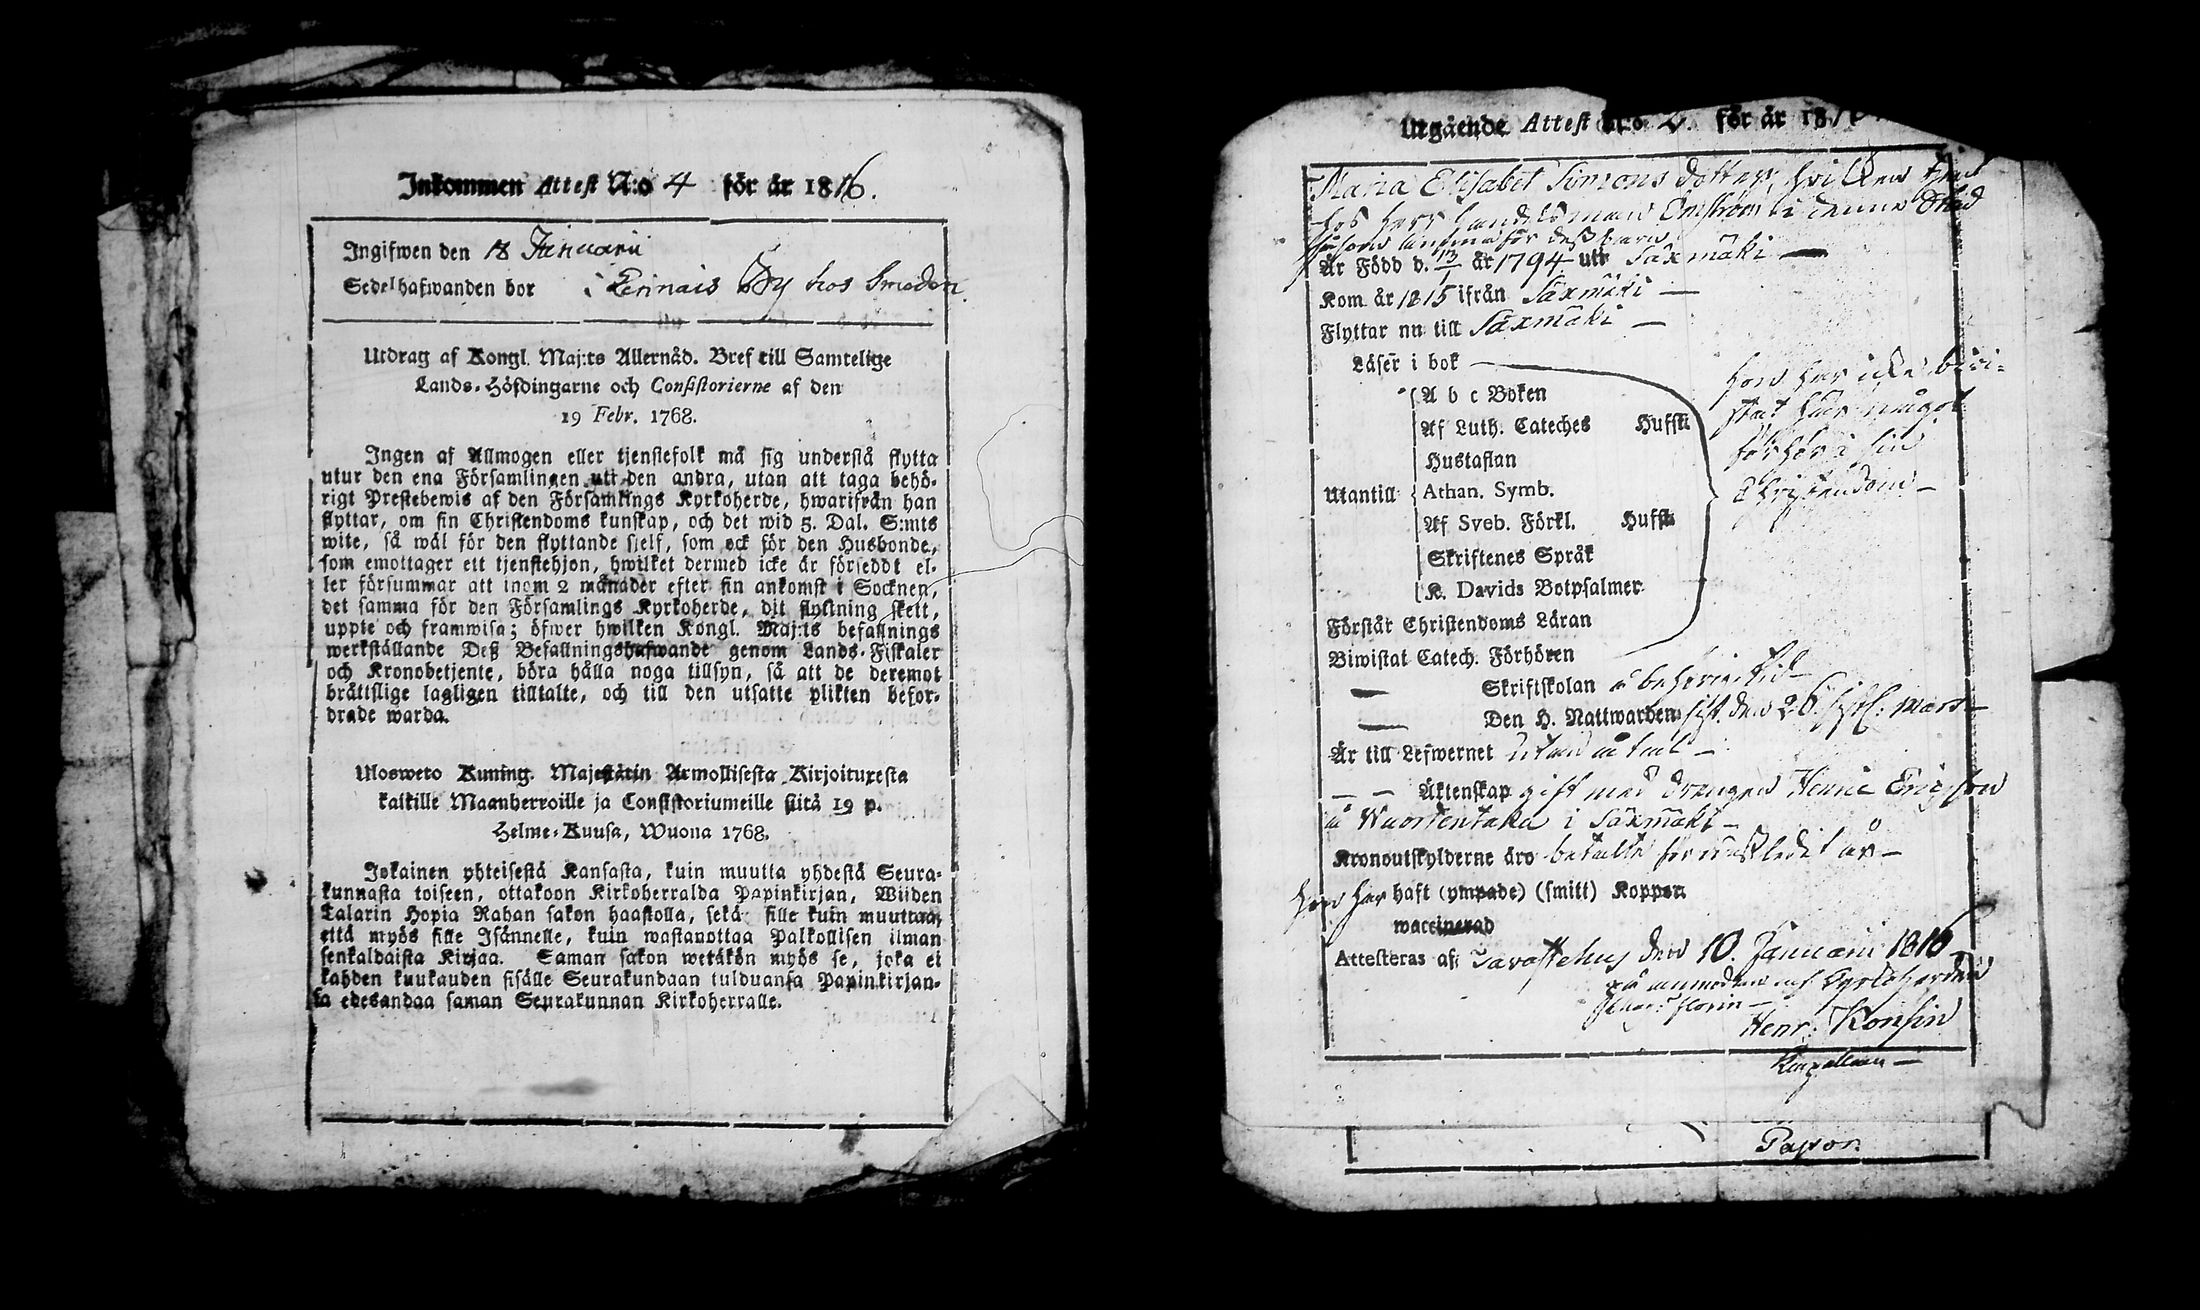 Inkommen Attest N:o 4 för år 1816.
Ingifwen den 18 Januarii
Sedelhafwanden bor i Lerinais By hos Smeden
Utdrag af Kongl. Maj:ts Allernåd. Bref till Samtelige
Lands-Höfdingarne och Consistorierne af den
19 Febr. 1768.
Ingen af Allmogen eller tjenstefolk må sig understå flytta
utur den ena Församlingen uti den andra, utan att taga behö-
rigt Prestebewis af den Församlings Kyrkoherde, hwarifrån han
flyttar, om sin Christendoms kunskap, och det wid 5. Dal. S:mts
wite, så wäl för den flyttande sjelf, som ock för den Husbonde,
som emottager ett tjenstehjon, hwilket dermed icke är förseddt el-
ler försummar att inom 2 månader efter sin ankomst i Socknen,
det samma för den Församlings Kyrkoherde, dit flyttning skett,
uppte och framwisa; öfwer hwilken Kongl. Maj:ts befallnings
werkställande Deß Befallningshafwande genom Lands-Fiskaler
och Kronobetjente, böra hålla noga tillsyn, så att de deremot
bråttslige lagligen tilltalte, och till den utsatte plikten befor-
drade warda.
Uloswето Kuning. Majestätin Armollisesta Kirjoituxesta
kaikille Maanherroille ja Consistoriumeille siitä 19 p.
Helme-Kuusa, Wuona 1768.
Jokainen yhteisestä Kansasta, kuin muutta yhdestä Seura-
kunnasta toiseen, ottakoon Kirkoherralda Papinkirjan, Wiiden
Talarin Hopia Rahan sakon haastolla, sekä sille kuin muuttaa,
että myös sille Isännelle, kuin wastanottaa Palkollisen ilman
senkaldaista Kirjaa. Saman sakon wetäkön myös se, joka ei
kahden kuukauden sisälle Seurakundaan tulduansa Papinkirjan-
sa edesandaa saman Seurakunnan Kirkoherralle.
Utgående Attest N:o 2. för år 181
Maria Elisabet Simons dotter, hvilken tjent
hos herr handelsman Enström i denne Stad
såsom amma för deß barn
Är Född d. 13/1 år 1794 uti Säxmäki
Kom år 1815 ifrån Säxmäki
Flyttar nu till Säxmäki
Läser i bok
A b c Boken
Af Luth. Cateches Hufst.
Hustaflan
Utantill Athan. Symb.
Af Sveb. Förkl. Hufst.
Skriftenes Språk
K. Davids Botpsalmer
hon har icke bivi-
stat här något
förhör i sin
Christendom
Förstår Christendoms Läran
Biwistat Catech. Förhören
Skriftskolan å behörig tid
Den H. Nattwarden sist den 26 sistl. Mars
Är till Lefwernet utan åtal
Äktenskap gift med drengen Henric Ericsson
å Wuorentaka i Säxmäki
Kronoutskylderne äro betalte för nästledit år
hon har haft (ympade) (smitt) Koppor
waccinerad
Attesteras af: Tavastehus den 10. Januarii 1816
på anmodan af Kyrkoherden
Florin
Henr: Konsin
Kapellan
Pastor.